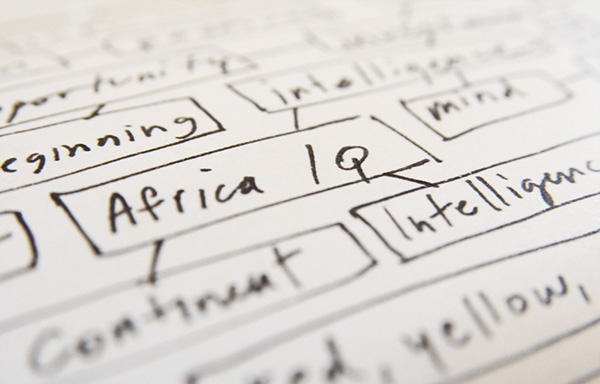 opportunity
intelligence
mind
eginning
Africa IQ
Intelligenc
Continent
red, yellow,